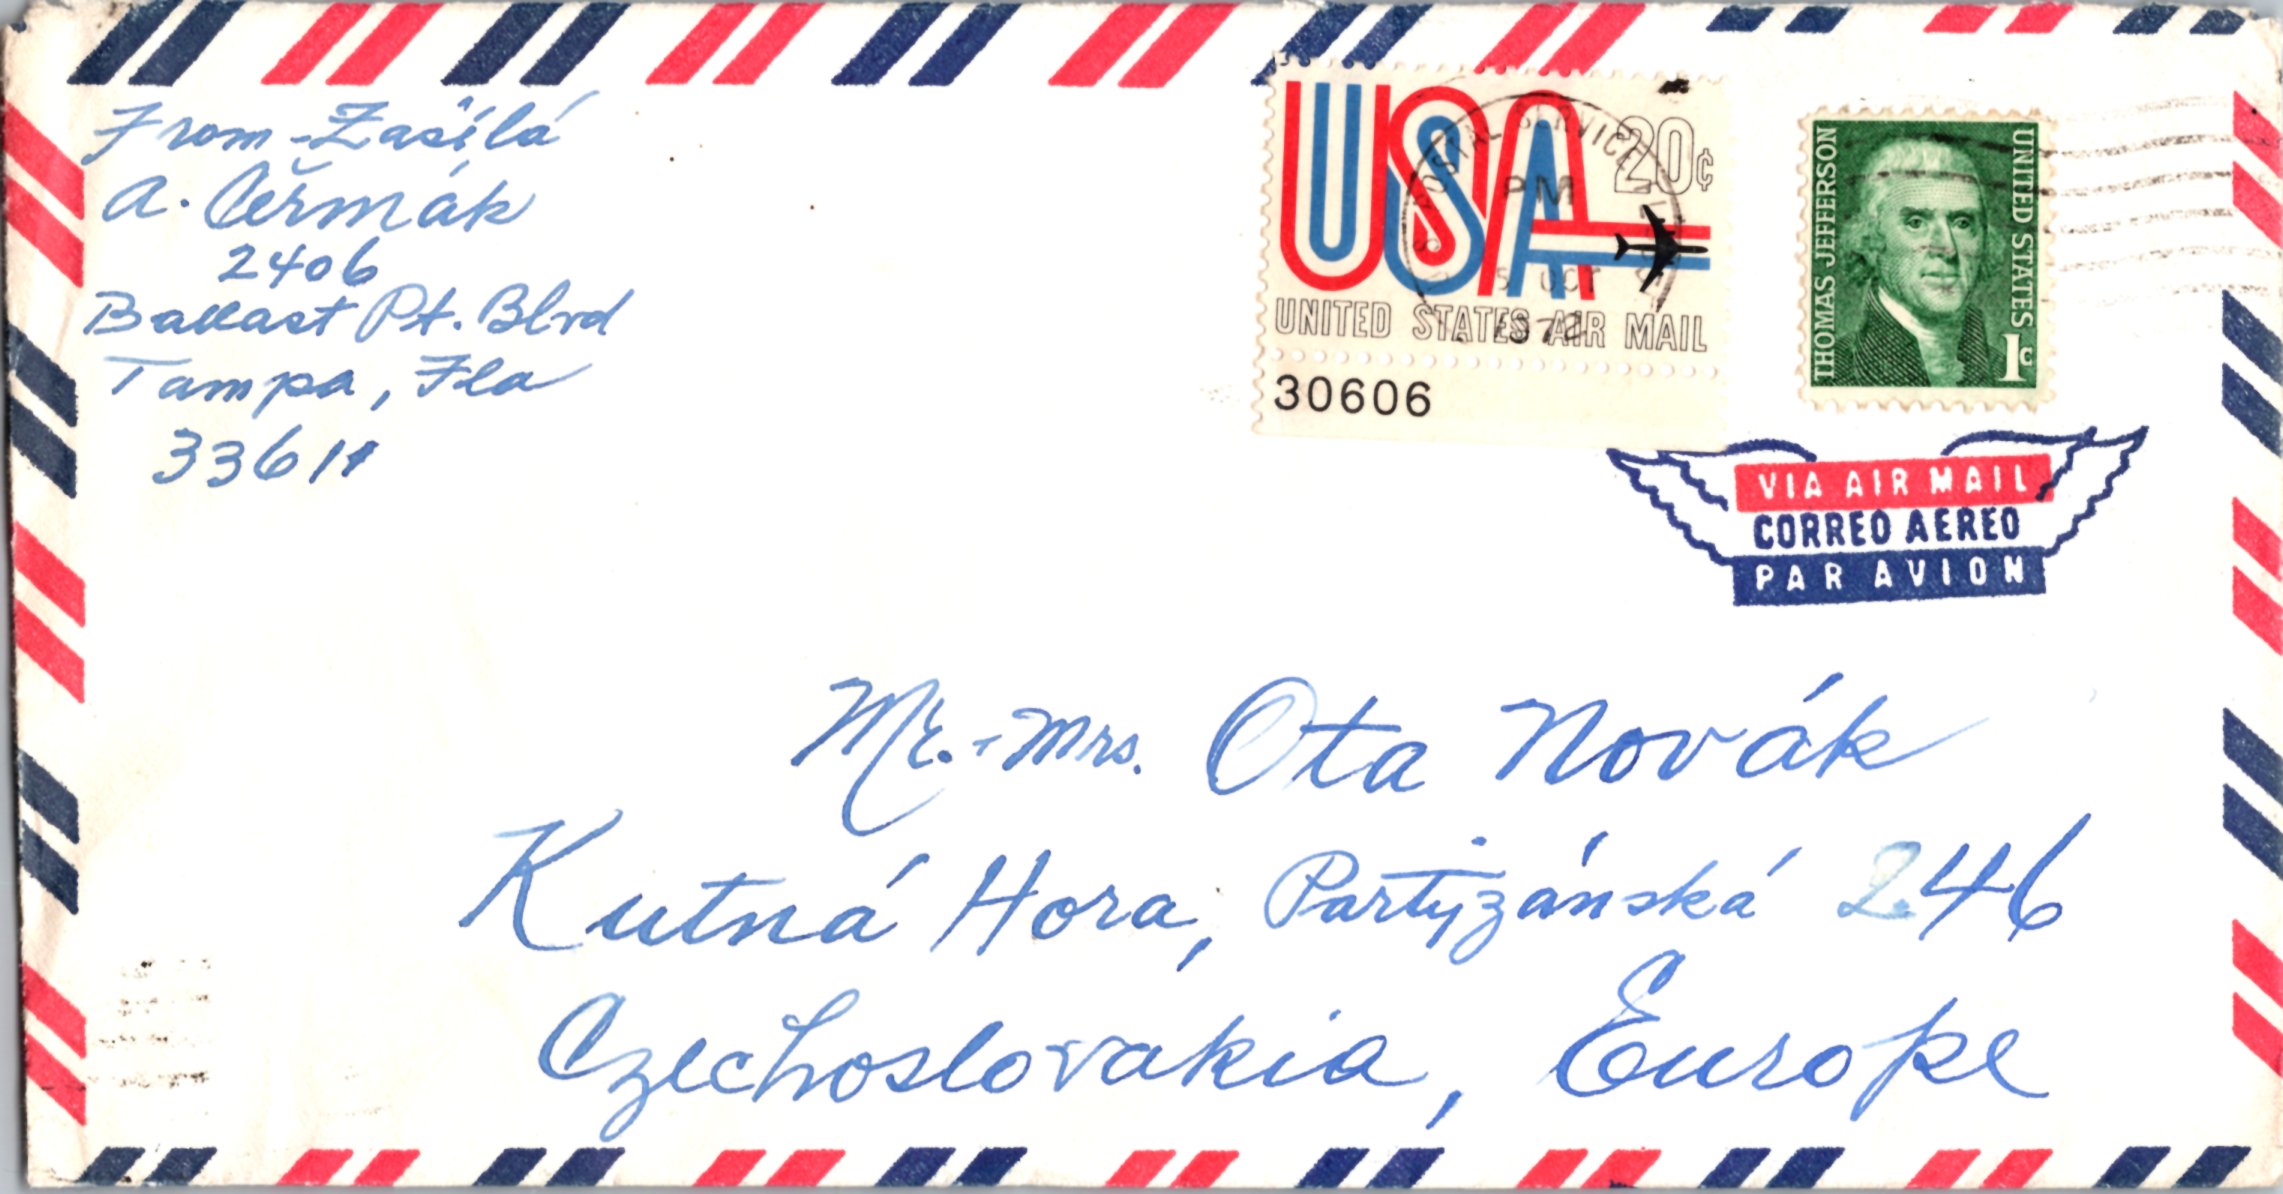 From - Zasílá
A. Čermák
2406
Ballast Pt. Blvd
Tampa, Fla
33611
USA
20¢
UNITED STATES AIR MAIL
30606
POSTAL SERVICE
PM
5 OCT
1972
THOMAS JEFFERSON
UNITED STATES
1c
VIA AIR MAIL
CORREO AEREO
PAR AVION
Mr. + Mrs. Ota Novák
Kutná Hora, Partyzánská 246
Czechoslovakia, Europe